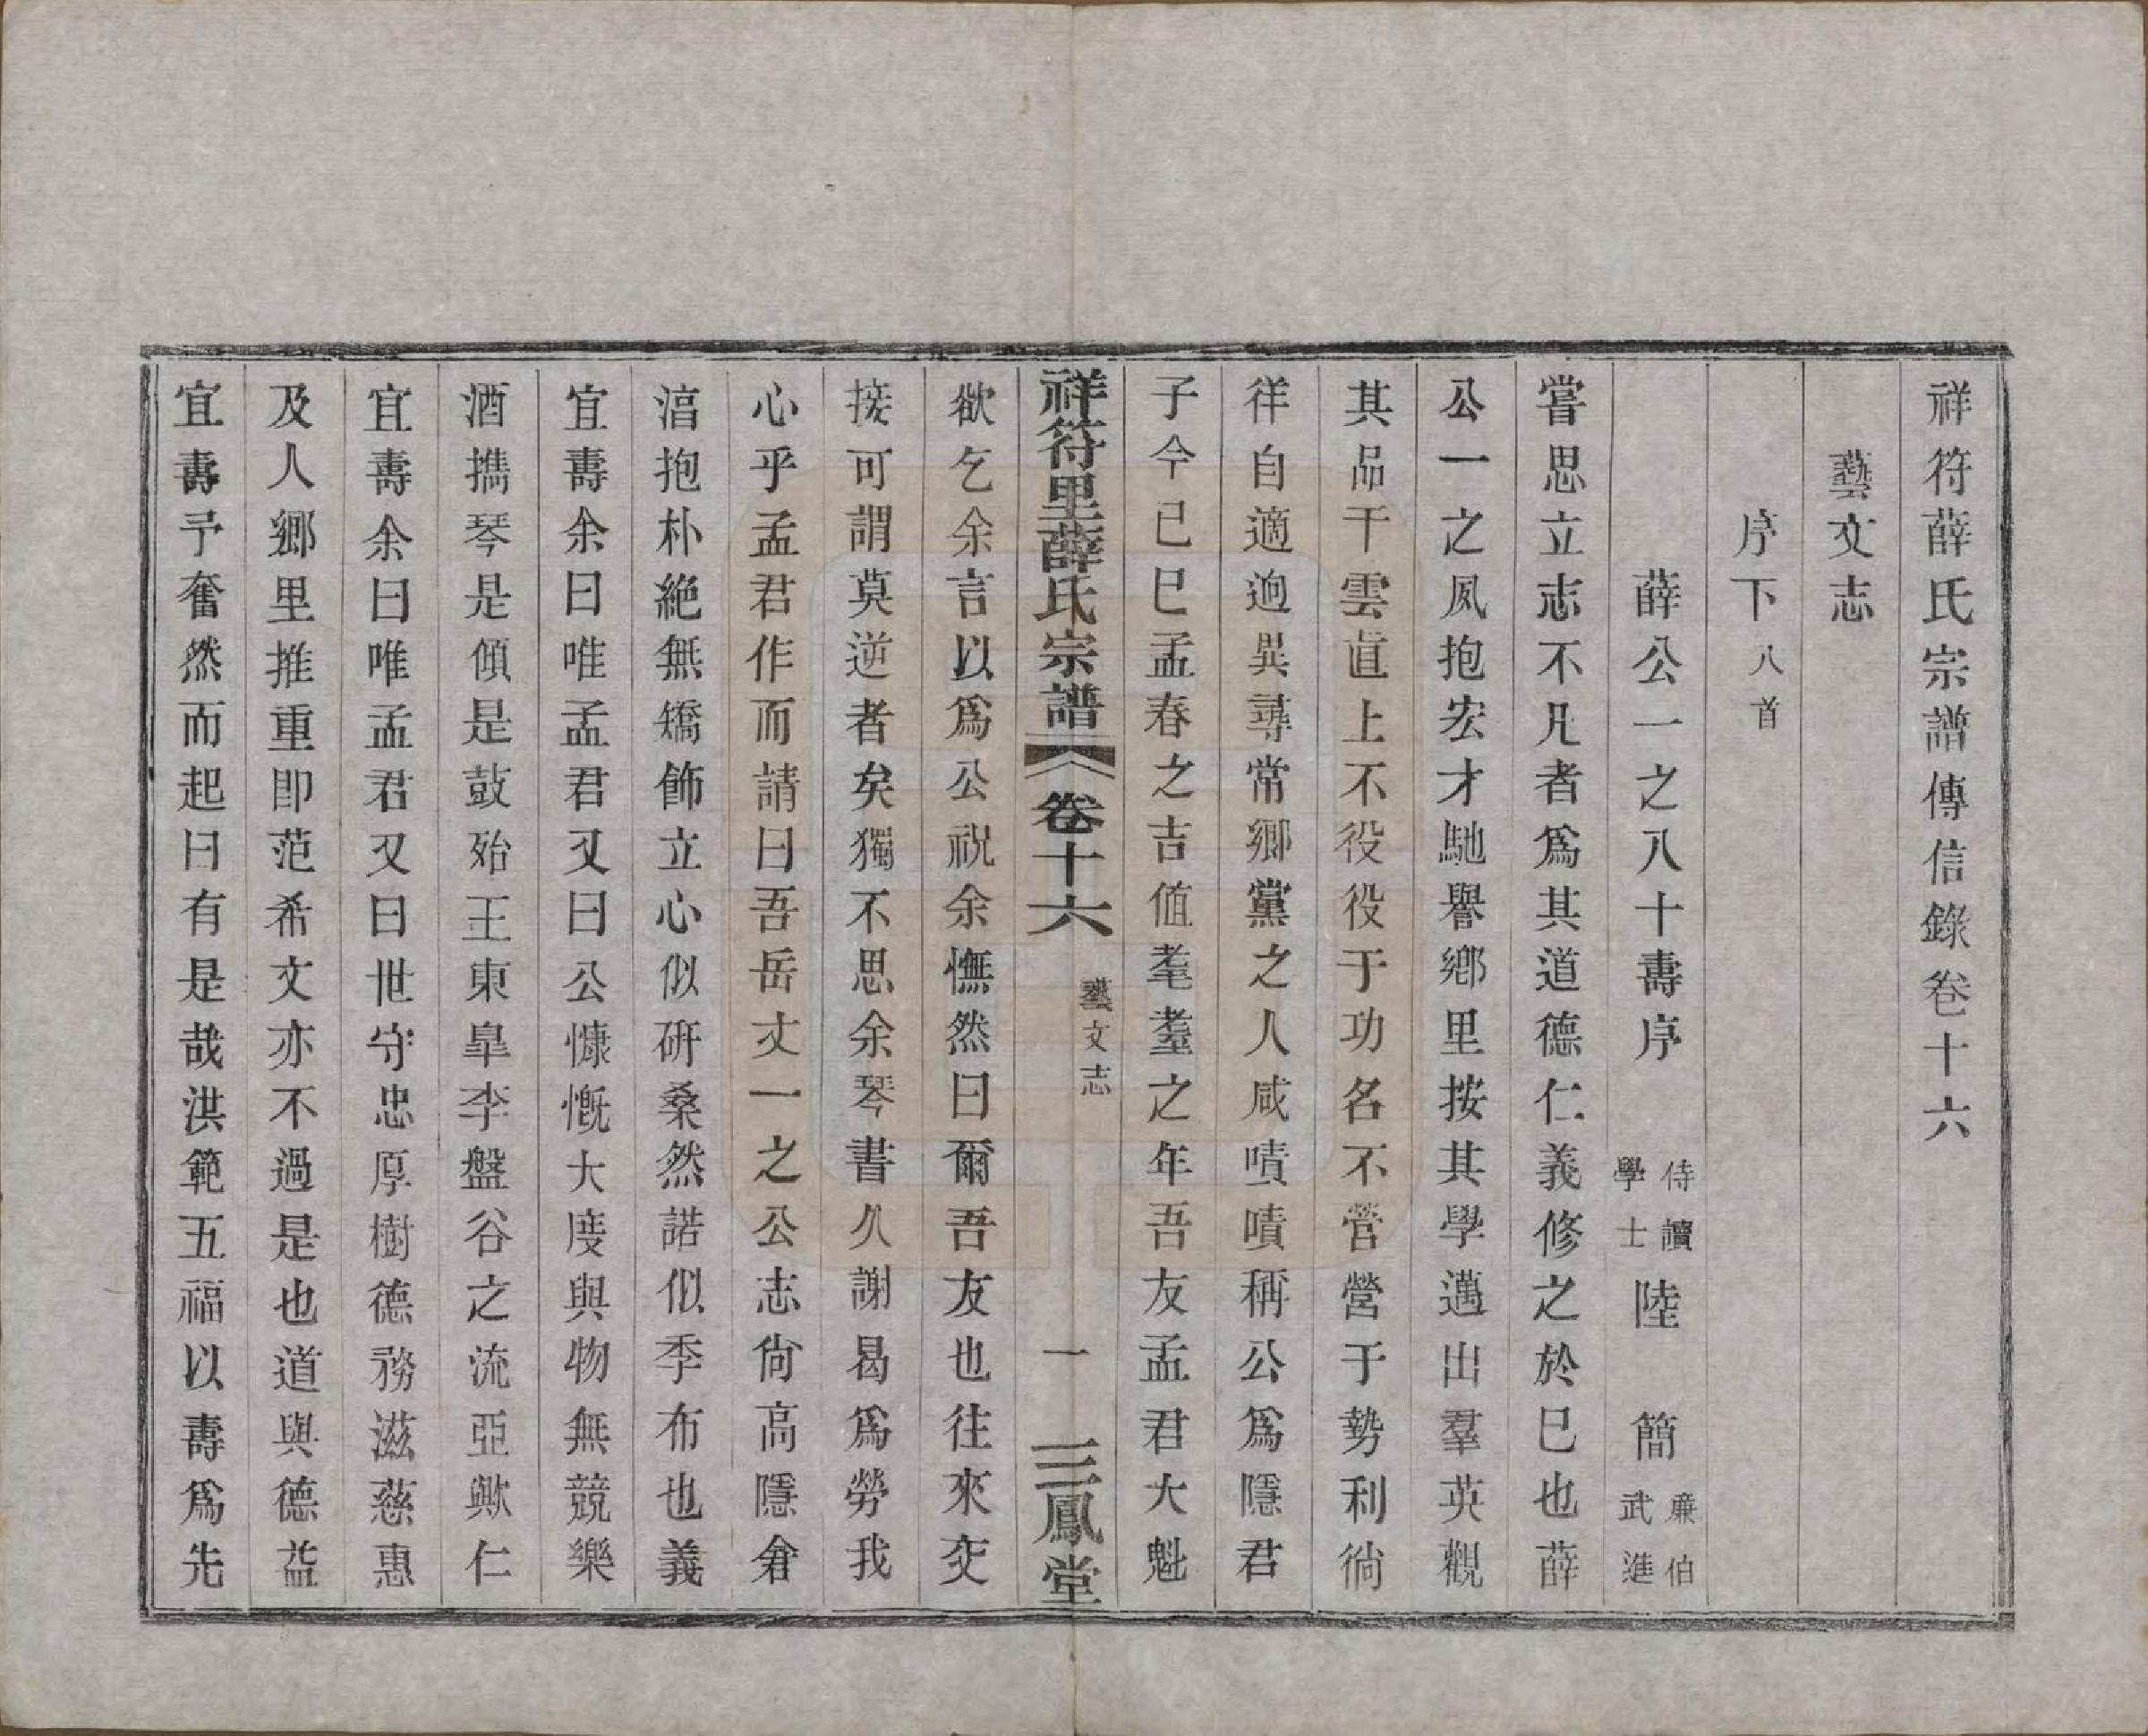 祥符薛氏宗譜傳信錄卷十六
藝文志
序下八首
薛公一之八十壽序 侍讀學士 陸 簡 廉伯武進
嘗思立志不凡者爲其道德仁義修之於巳也薛
公一之夙抱宏才馳譽鄉里按其學邁出羣英觀
其品干雲直上不役役于功名不營營于勢利徜
徉自適逈異尋常鄉黨之人咸嘖嘖稱公爲隱君
子今已巳孟春之吉値耄耋之年吾友孟君大魁
祥符里薛氏宗譜 卷十六 藝文志 一 三鳳堂
欲乞余言以爲公祝余憮然曰爾吾友也往來交
接可謂莫逆者矣獨不思余琴書久謝曷爲勞我
心乎孟君作而請曰吾岳丈一之公志尙高隱畣
㵎抱朴絶無矯飾立心似硏桑然諾似季布也義
宜壽余曰唯孟君又曰公慷慨大度與物無競樂
酒攜琴是傾是鼓殆王東臯李盤谷之流亞歟仁
宜壽余曰唯孟君又曰世守忠厚樹德務滋慈惠
及人鄉里推重卽范希文亦不過是也道與德益
宜壽予奮然而起曰有是哉洪範五福以壽爲先